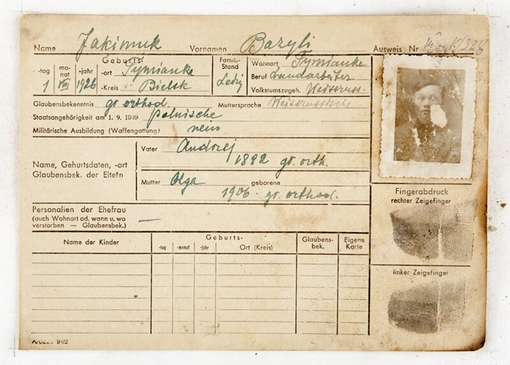 Name Jakimuk Vornamen Bazyli Ausweis Nr
Geburts- Familien-Stand Wohnort Tymianka
-tag mo-nat -jahr -ort Tymianka Ledig Beruf Landarbeiter
1 VIII 1926 -Kreis Bielsk Volkstumszugeh. Weissruss.
Glaubensbekenntnis gr. orthod. Muttersprache
Staatsangehörigkeit am 1. 9. 1939 polnische
Militärische Ausbildung (Waffengattung) nein
Name, Geburtsdaten, -ort
Glaubensbek. der Eltern
Vater Andrzej
1892 gr. orth.
Mutter Olga geborene
1906 gr. orthod.
Personalien der Ehefrau
(auch Wohnort od. wann u. wo
verstorben — Glaubensbek.) —
Name der Kinder Geburts- Glaubens-bek. Eigene Karte
-tag -monat -jahr Ort (Kreis)
Fingerabdruck
rechter Zeigefinger
linker Zeigefinger